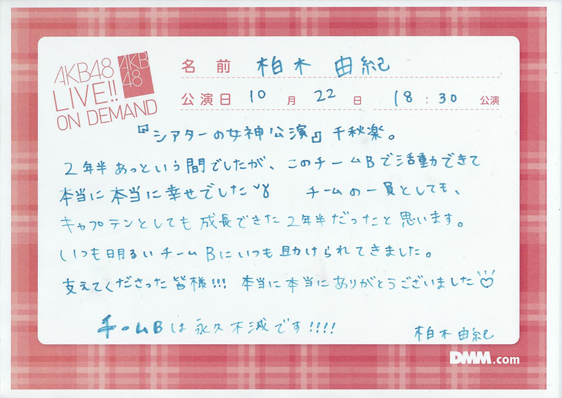 AKB48
LIVE!!
ON DEMAND
AKB
48
名前 柏木 由紀
公演日 10月 22日 18:30 公演
『シアターの女神公演』千秋楽。
2年半あっという間でしたが、このチームBで活動できて
本当に本当に幸せでした チームの一員としても、
キャプテンとしても成長できた2年半だったと思います。
いつも明るいチームBにいつも助けられてきました。
支えてくださった皆様!!! 本当に本当にありがとうございました♡
チームBは永久不滅です!!!!
柏木由紀
DMM.com